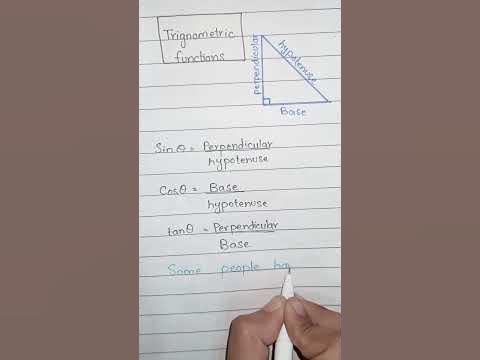 Trignometric
functions
perpendicular
hypotenuse
Base
Sinθ = Perpendicular
hypotenuse
Cosθ = Base
hypotenuse
tanθ = Perpendicular
Base
Some people ha